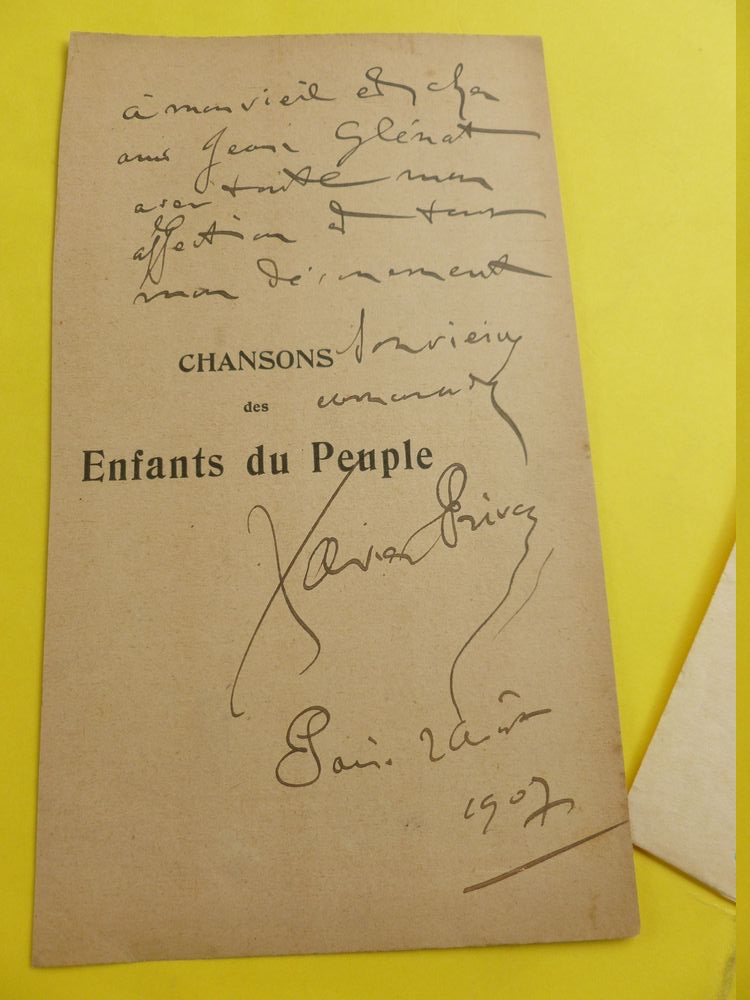 à mon vieil et cher
ami Jean Glénat
avec toute mon
affection et tout
mon dévouement
Son vieux
camarade
CHANSONS
des
Enfants du Peuple
Xavier Privas
Paris 2 août
1907